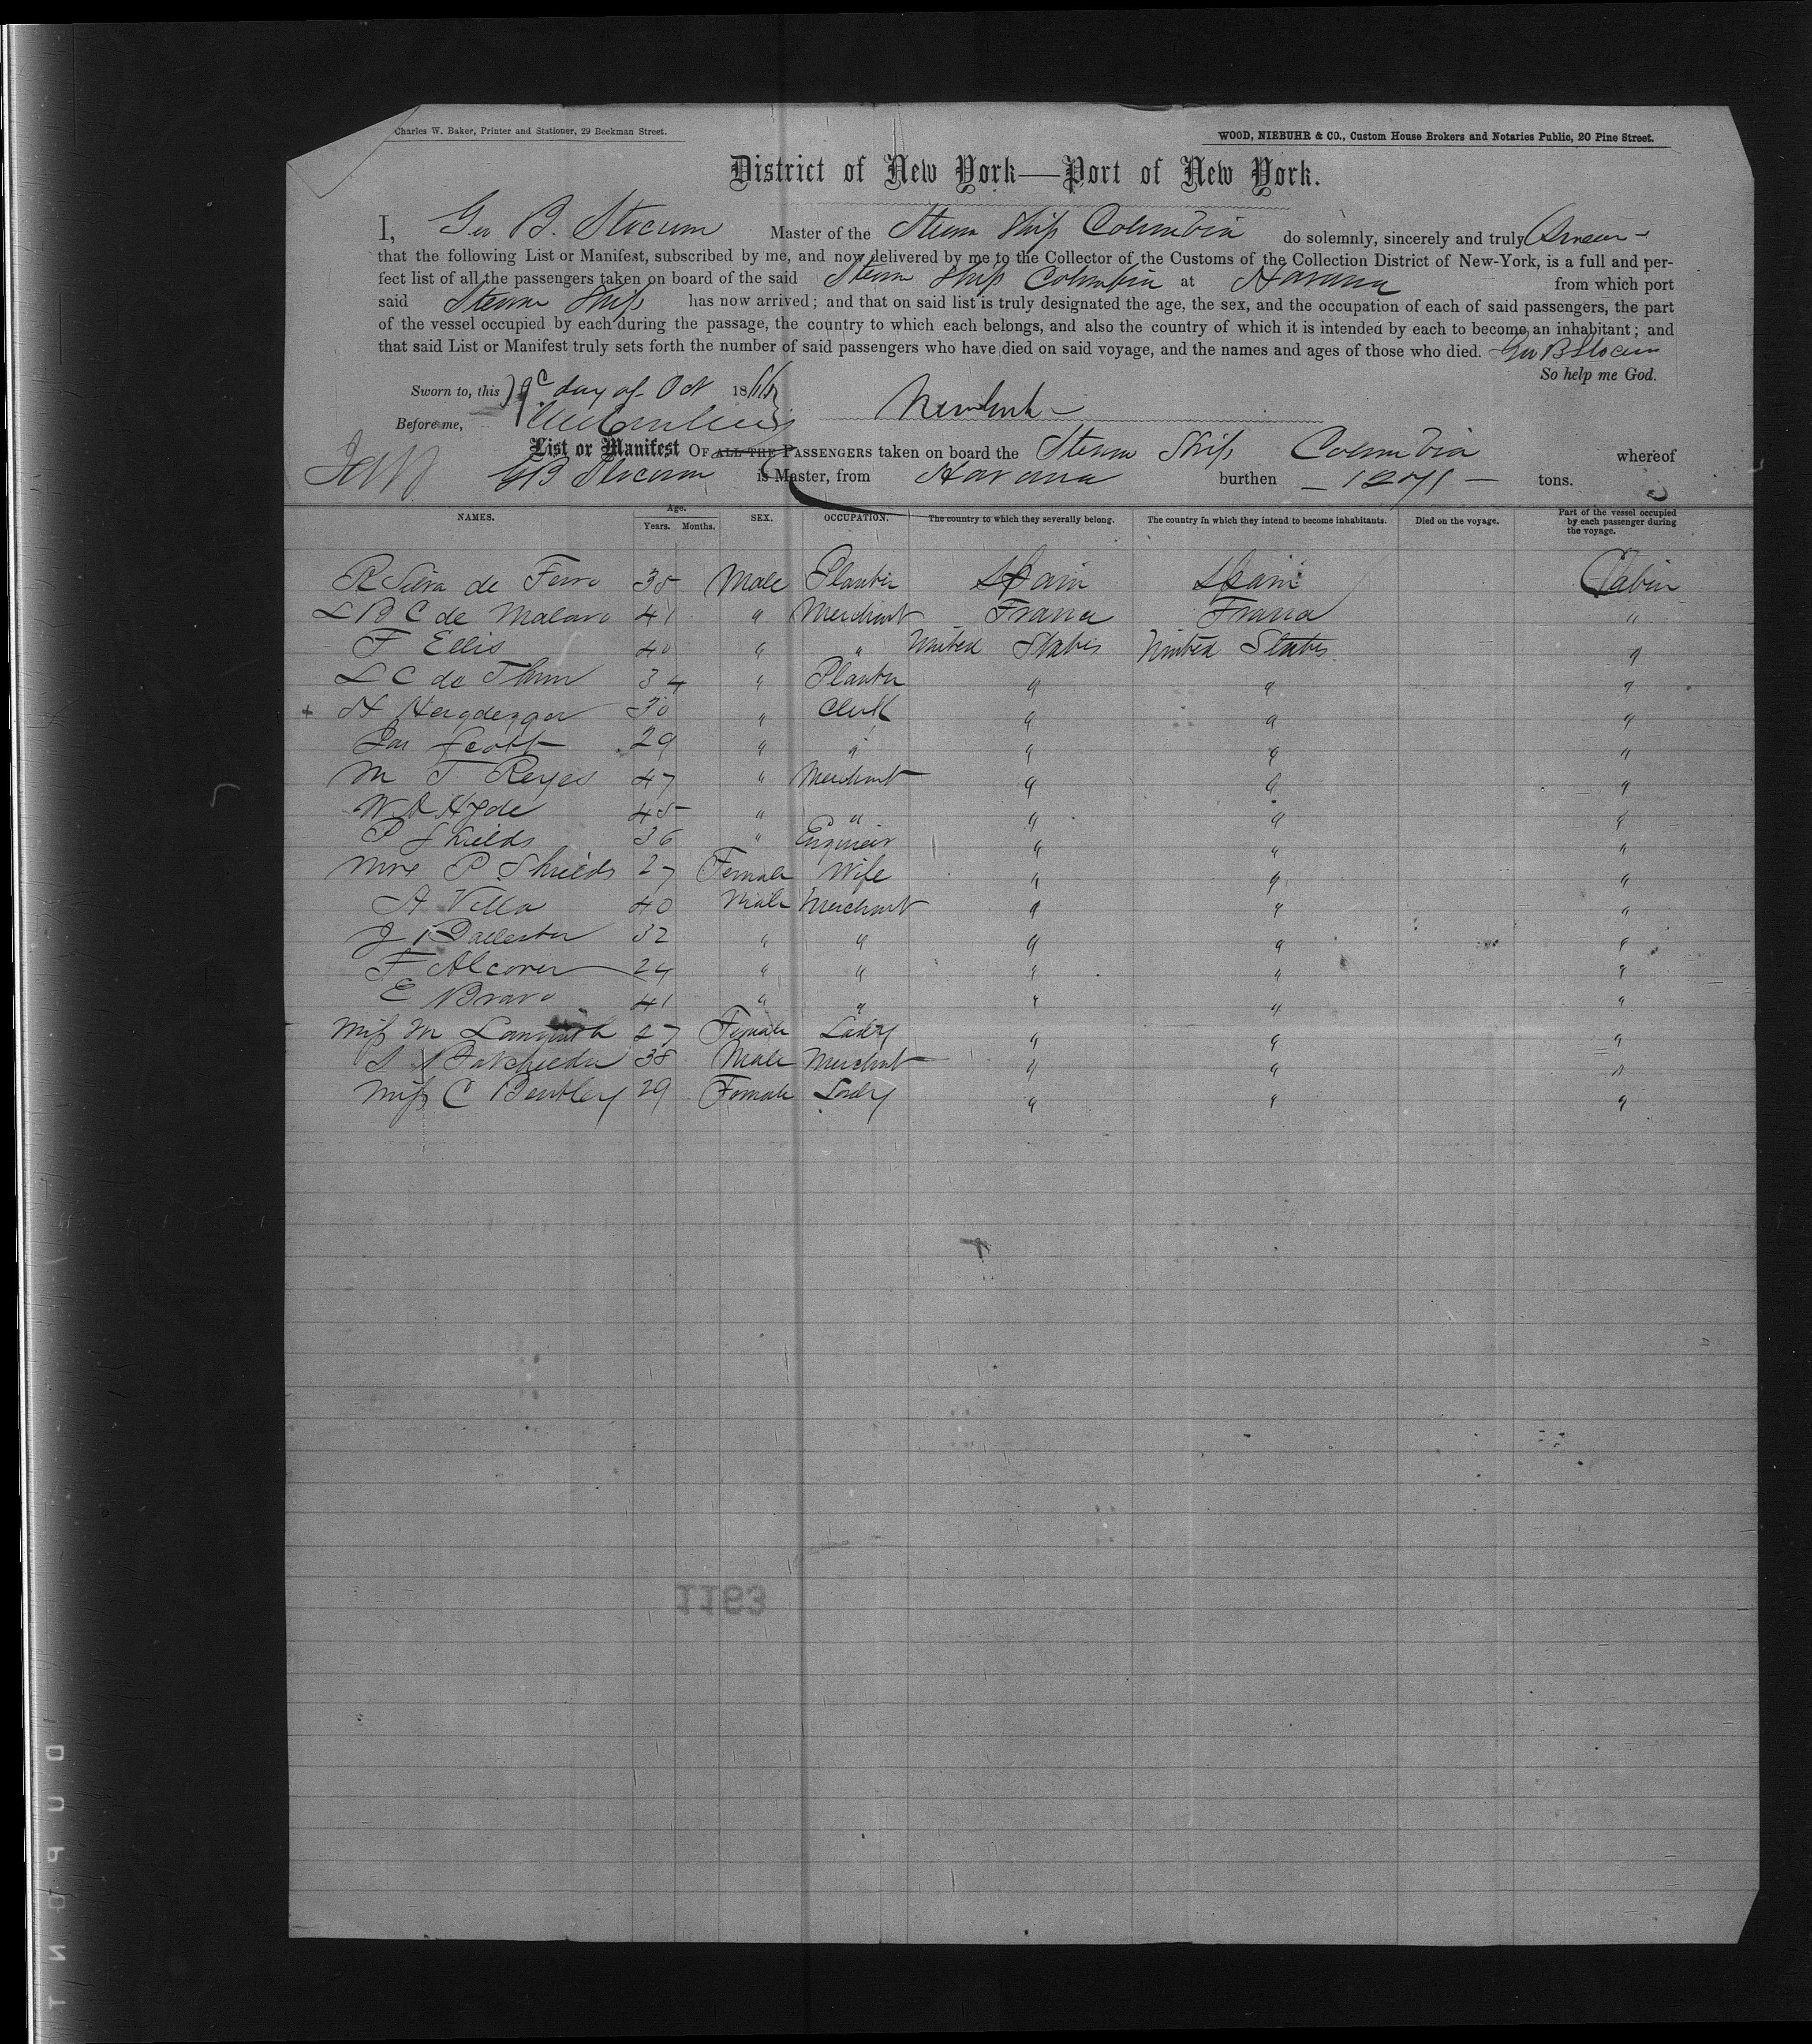 Charles W. Baker, Printer and Stationer, 29 Beekman Street.
WOOD, NIEBUHR & CO., Custom House Brokers and Notaries Public, 20 Pine Street.
District of New York—Port of New York.
I, Geo B. Slocum Master of the Steam Ship Columbia do solemnly, sincerely and truly Swear
that the following List or Manifest, subscribed by me, and now delivered by me to the Collector of the Customs of the Collection District of New-York, is a full and per-
fect list of all the passengers taken on board of the said Steam Ship Columbia at Havana from which port
said Steam Ship has now arrived; and that on said list is truly designated the age, the sex, and the occupation of each of said passengers, the part
of the vessel occupied by each during the passage, the country to which each belongs, and also the country of which it is intended by each to become an inhabitant; and
that said List or Manifest truly sets forth the number of said passengers who have died on said voyage, and the names and ages of those who died. Geo B Slocum
So help me God.
Sworn to, this day of Oct 1866
Before me,
List or Manifest OF ALL THE PASSENGERS taken on board the Steam Ship Columbia whereof
GB Slocum is Master, from Havana burthen — 1271 — tons.
NAMES. Age. Years. Months. SEX. OCCUPATION. The country to which they severally belong. The country in which they intend to become inhabitants. Died on the voyage. Part of the vessel occupied by each passenger during the voyage.
R Silva de Ferro 35 Male Planter Spain Spain Cabin
L B C de Malavo 41 " Merchant France France "
F Ellis 40 " " United States United States "
L C de 34 " Planter " " "
+ H 30 " Clerk " " "
Jas Scott 29 " " " " "
M T Reyes 47 " Merchant " " "
W Hyde 45 " " " " "
P Shields 36 " Engineer " " "
Mrs P. Shields 27 Female Wife " " "
A Villa 40 Male Merchant " " "
J Ballester 32 " " " " "
F Alcover 24 " " " " "
E Bravo 41 " " " " "
Miss M 27 Female Lady " " "
S 38 Male Merchant " " "
Miss C Bentley 29 Female Lady " " "
1163
DUPONT